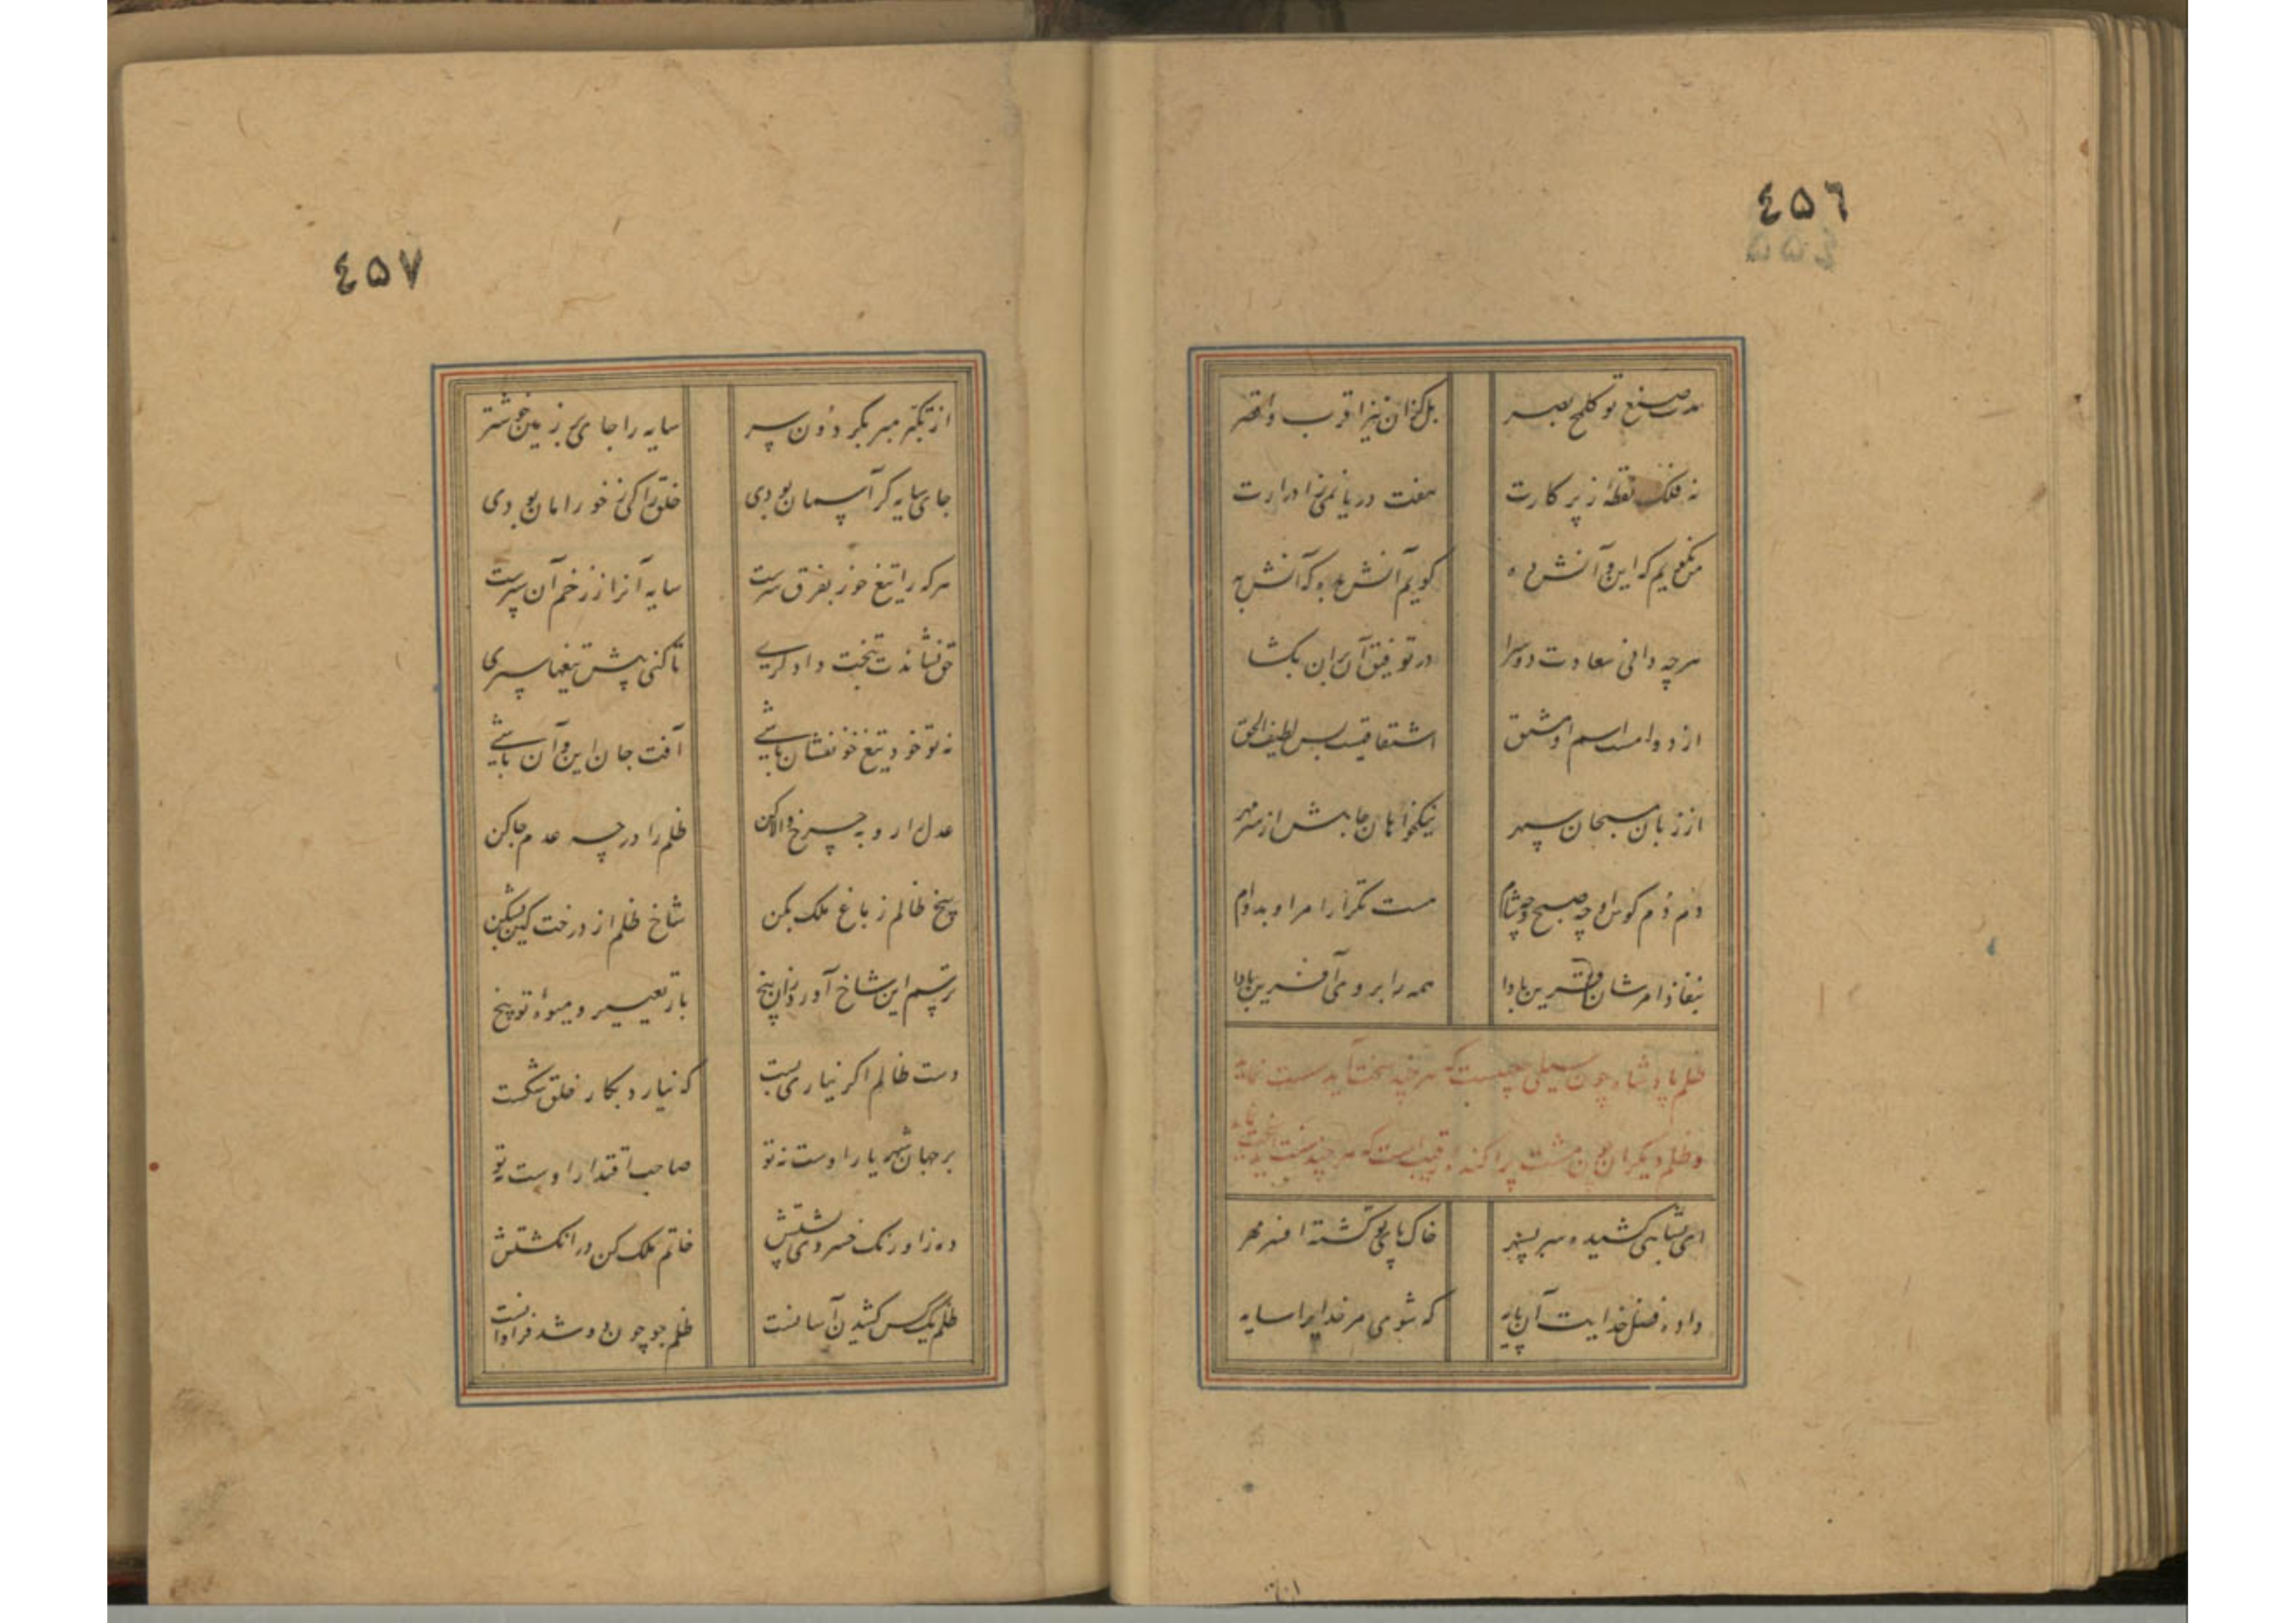 ٤٥٦
مدت صنع تو کلمح بصر
بل کزان نیز اقرب و اقصر
نه فلک نقطهٔ ز پرکارت
هفت دریا نمی ز ادرارت
من نگویم که این و آنش ده
گویم آنش بده که آنش به
هرچه دانی سعادت دو سرا
در توفیق آن بران بگشا
از دوامست اسم او مشتق
اشتقاقیست بس لطیف الحق
از زبان مسبحان سپهر
نیکخواهان جانبش از سر مهر
دم دم کوس او چه صبح و چه شام
هست تکرار امر او بدوام
بنفاذ امرشان قرین بادا
همه را بر وی آفرین بادا
ظلم پادشاه چون سیلی چیست که هر چند سخت آید سست نماید
و ظلم دیگران چون مشت پراکنده که هر چند سست آید سخت نماید
ای بشاهی کشیده سر بسپهر
خاک پای تو گشته افسر مهر
داده فضل خدایت آن پایه
که شوی مر خدایرا سایه
٤٥٧
از تکبر مبر بگردون سر
سایه را جای بر زمین خوشتر
جای سایه گر آسمان بودی
خلق را کی ز خور امان بودی
هر که را تیغ خور بفرق سرست
سایه آنرا ز زخم آن سپرست
حق نشاندت بتخت دادگری
تا کنی پیش تیغها سپری
نه تو خود تیغ خونفشان باشی
آفت جان این و آن باشی
عدل را رو به چرخ والا کن
ظلم را در چه عدم جا کن
بیخ ظالم ز باغ ملک بکن
شاخ ظلم از درخت کین بشکن
ترسم این شاخ آورد زان بیخ
بار تعییر و میوهٔ توبیخ
دست ظالم اگر نیاری بست
که نیارد بکار خلق شکست
بر جهان شهریار اوست نه تو
صاحب اقتدار اوست نه تو
ده ز اورنگ خسروی پشتش
خاتم ملک کن در انگشتش
ظلم یک کس کشیدن آسانست
ظلم جو چون دو شد فراوانست